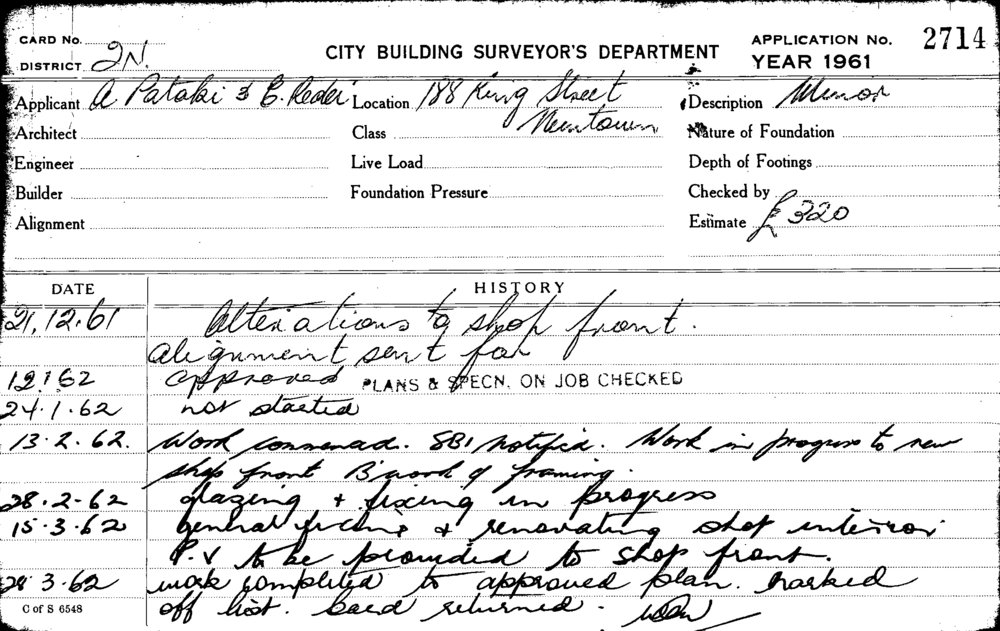 CARD No. 
DISTRICT 2N.
CITY BUILDING SURVEYOR'S DEPARTMENT
APPLICATION No. 2714
YEAR 1961
Applicant A Pataki & E. Reder Location 188 King Street Description Minor
Architect Class Newtown Nature of Foundation
Engineer Live Load Depth of Footings
Builder Foundation Pressure Checked by
Alignment Estimate £320
DATE HISTORY
21.12.61 Alterations to shop front.
alignment sent for
12.1.62 approved PLANS & SPECN. ON JOB CHECKED
24.1.62 not started
13.2.62. Work commenced. SBI notified. Work in progress to new
shop front B'work & framing.
28.2-62 glazing + fixing in progress
15.3.62 general fixing & renovating shop interior
P.V to be provided to shop front.
28 3.62 work completed to approved plan. marked
off list. Card returned.
C of S 6548